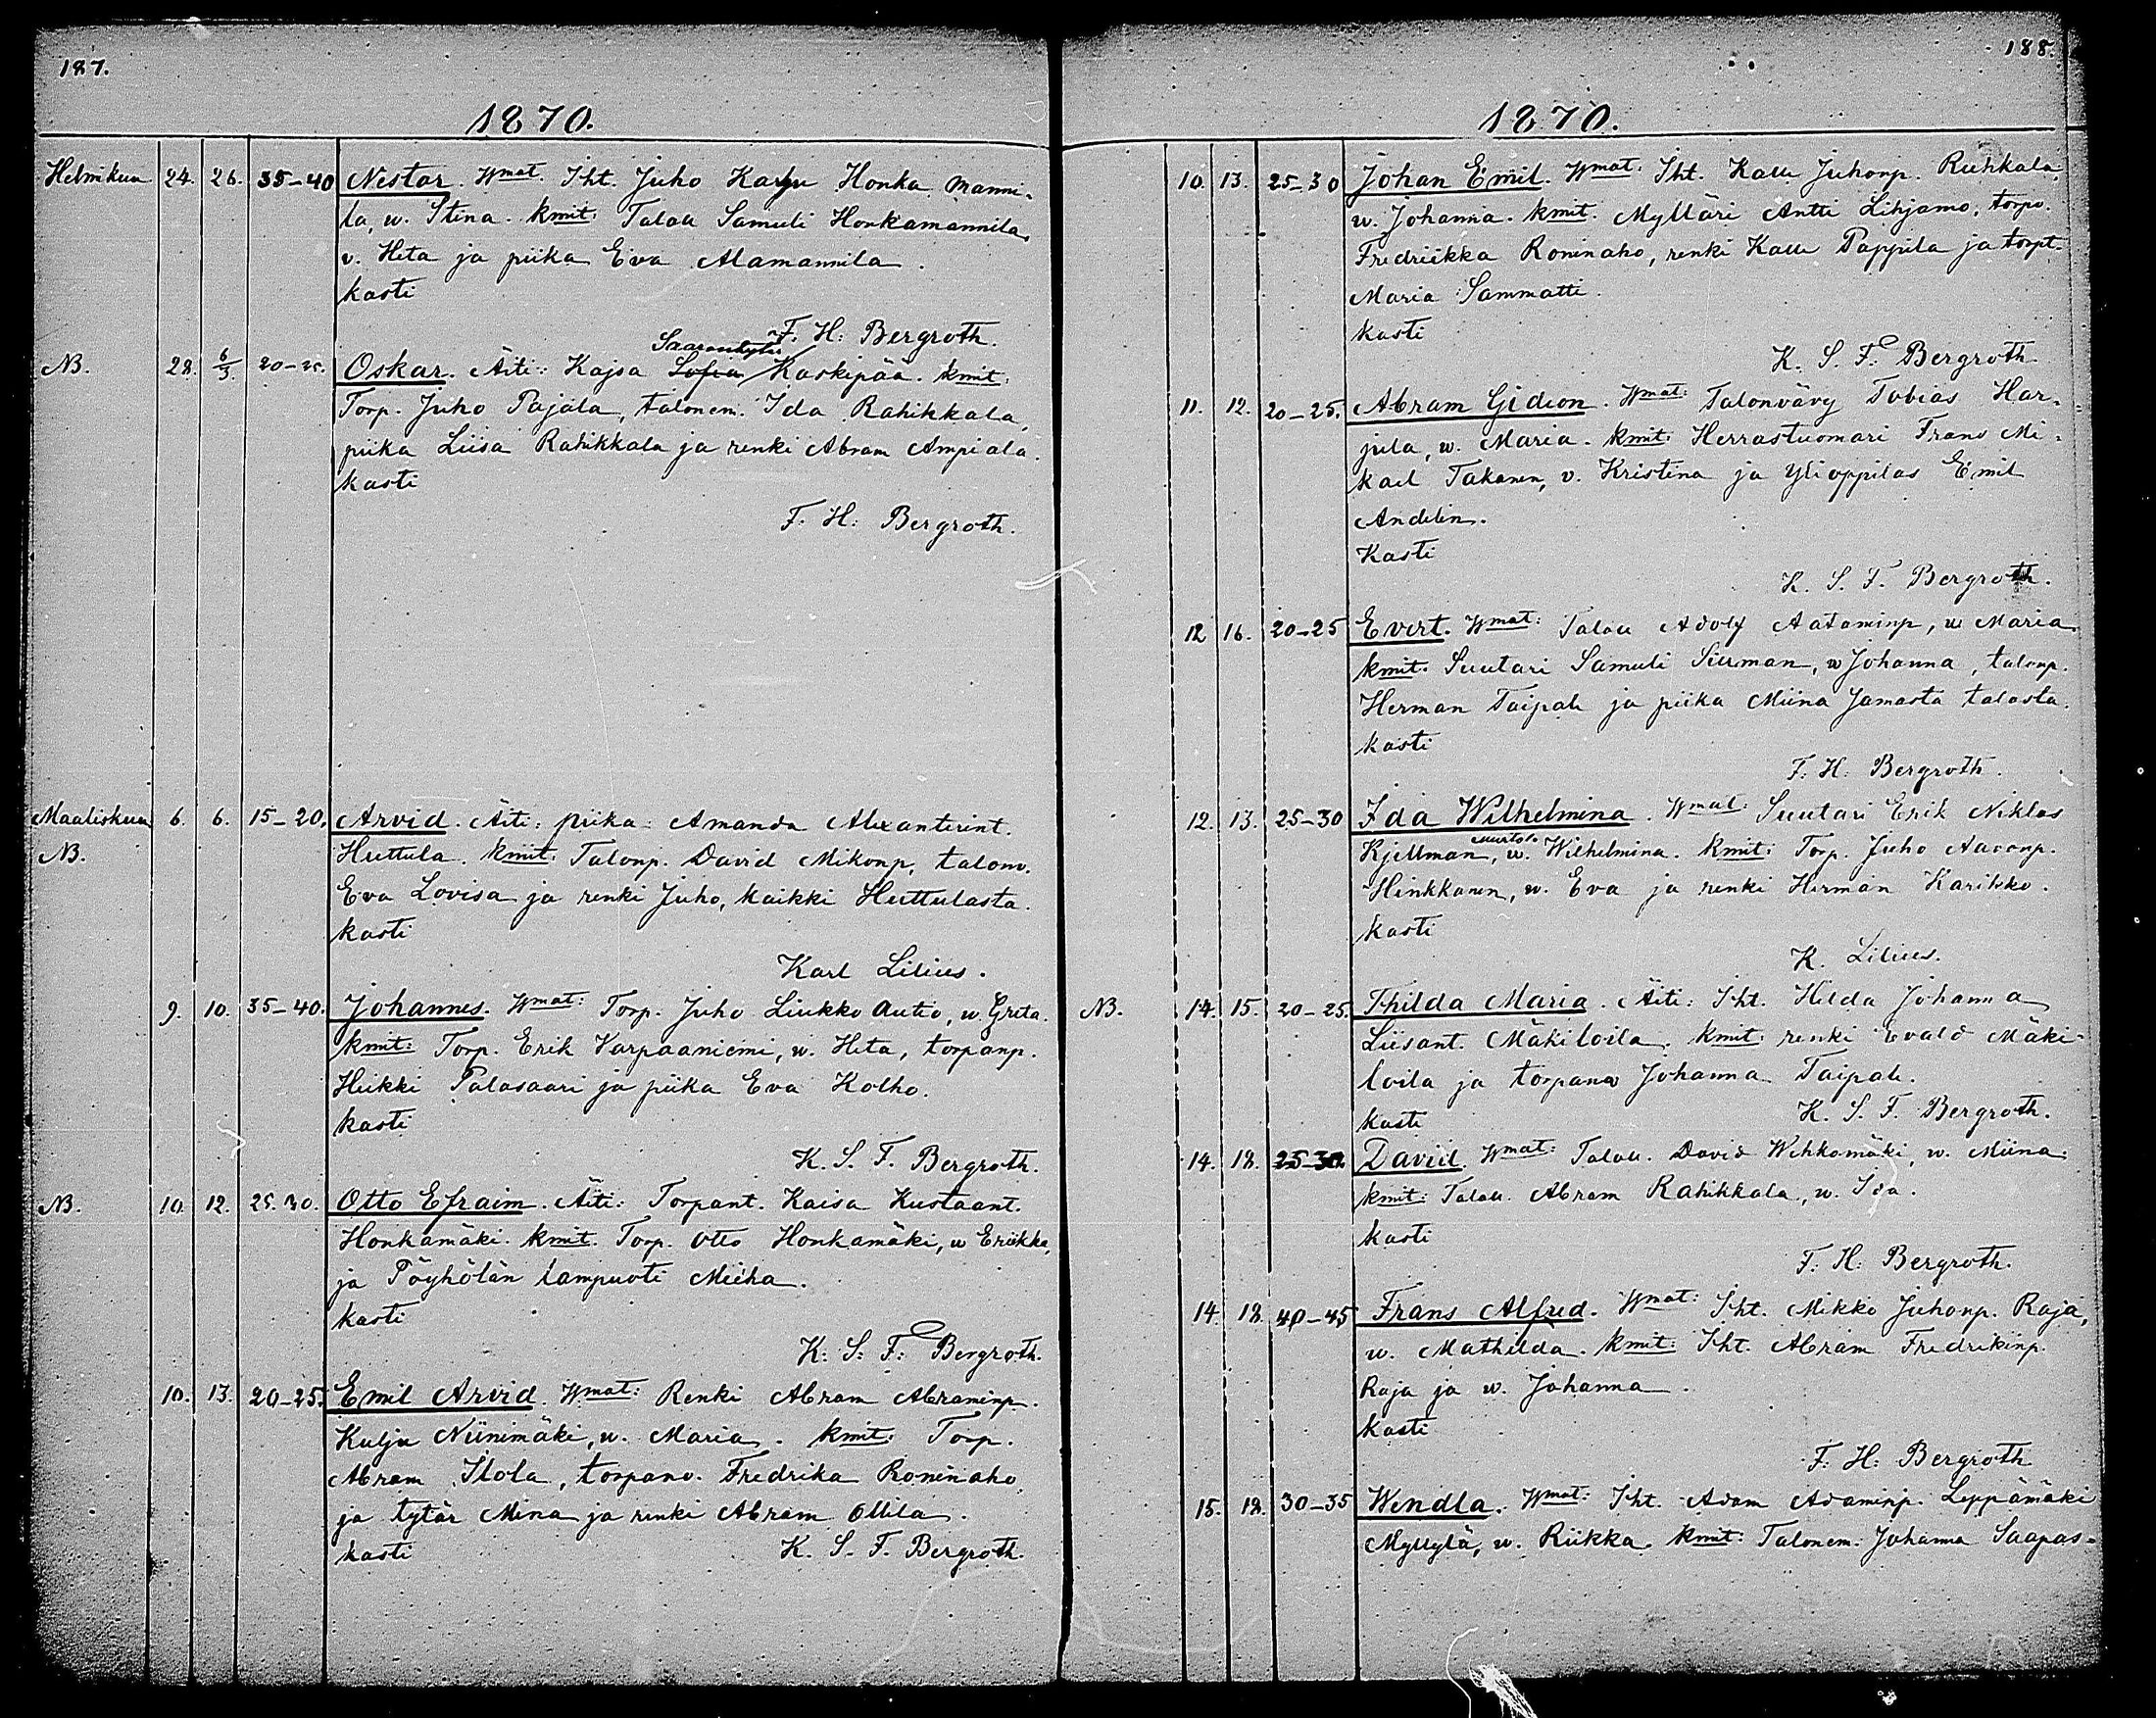 187.
1870.
Helmikuu 24. 26. 35-40 Nestor. Wmat. Iht. Juho Karju Honka manni-
la, w. Stina. kmit: Talou Samuli Honkamannila,
v. Heta ja piika Eva Alamannila.
kasti
F. H: Bergroth.
NB. 28. 6/3. 20-25. Oskar. Äiti: Kajsa Sofia Koskipää. kmit:
Torp. Juho Pajala, talonem. Ida Rahikkala,
piika Liisa Rahikkala ja renki Abram Ampiala.
kasti
F. H: Bergroth.
Maaliskuu 6. 6. 15-20. Arvid. Äiti: piika Amanda Alexanterint.
NB. Huttula. kmit: Talonp. David Mikonp, talonv.
Eva Lovisa ja renki Juho, kaikki Huttulasta.
kasti
Karl Lilius.
9. 10. 35-40. Johannes. Wmat: Torp. Juho Liukko Autio, w. Greta.
kmit: Torp. Erik Varpaaniemi, w. Heta, torpanp.
Heikki Palasaari ja piika Eva Kolho.
kasti
K. S. F. Bergroth.
NB. 10. 12. 25.30. Otto Efraim. Äiti: Torpant. Kaisa Kustaant.
Honkamäki. kmit. Torp. Otto Honkamäki, w Eriikka,
ja Pöyhölän lampuoti Miiha.
kasti
K: S: F: Bergroth.
10. 13. 20-25. Emil Arvid. Wmat: Renki Abram Abraminp.
Kulju Niinimäki, w. Maria. kmit: Torp.
Abram Ilola, torpanv. Fredrika Roninaho
ja tytär Mina ja renki Abram Ollila.
kasti K. S. F. Bergroth.
188.
1870.
10. 13. 25-30 Johan Emil. Wmat: Iht. Kalle Juhonp. Ruhkala,
w. Johanna. kmit. Mylläri Antti Lihjamo, torpv.
Fredriikka Roninaho, renki Kalle Pappila ja torpt.
Maria Sammatti.
kasti
K. S. F. Bergroth
11. 12. 20-25. Abram Gideon. Wmat: Talonvävy Tobias Har-
jula, w. Maria. kmit: Herrastuomari Frans Mi-
kael Takanen, v. Kristina ja Ylioppilas Emil
Andelin.
Kasti
K. S. F. Bergroth.
12 16. 20-25 Evert. Wmat: Talou Adolf Aataminp, w Maria
kmit. Suutari Samuli Siurman, w Johanna, talonp.
Herman Taipale ja piika Miina Jamasta talosta.
kasti
F. H: Bergroth.
12. 13. 25-30 Ida Wilhelmina. Wmat: Suutari Erik Niklas
Kjellman, w. Wilhelmina. kmit: Torp. Juho Aaronp.
Hinkkanen, w. Eva ja renki Herman Karikko.
kasti
K. Lilius.
NB. 14. 15. 20-25. Thilda Maria. Äiti: Iht. Hilda Johanna
Liisant. Mäkiloila. kmit: renki Evald Mäki-
loila ja torpanv Johanna Taipale.
kasti K. S. F. Bergroth.
14. 18. 25-30. Daviid. Wmat: Talou. David Wehkomäki, w. Miina.
kmit: Talou. Abram Rahikkala, w. Ida.
kasti
F. H: Bergroth.
14. 18. 40-45 Frans Alfred. Wmat: Iht. Mikko Juhonp. Raja,
w. Mathilda. kmit: Iht. Abram Fredrikinp.
Raja ja w. Johanna.
kasti
F. H: Bergroth
15. 18. 30-35 Wendla. Wmat: Iht. Adam Adaminp. Leppämäki
Myllylä, w. Riikka. kmit: Talonem. Johanna Saapas-